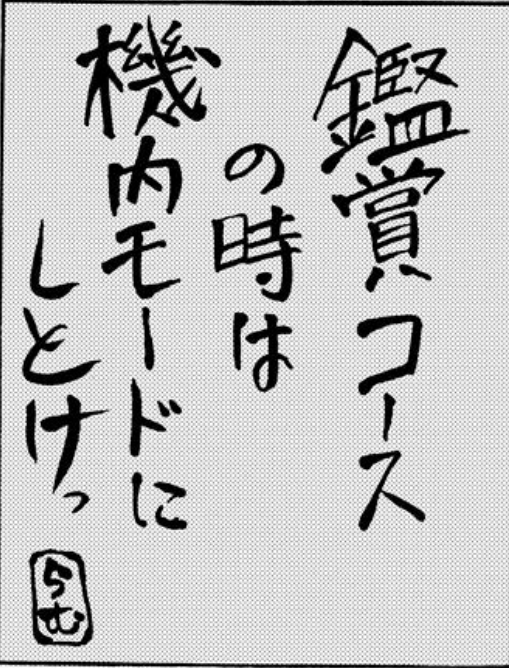 鑑賞コース
の時は
機内モードに
しとけっ
らむ